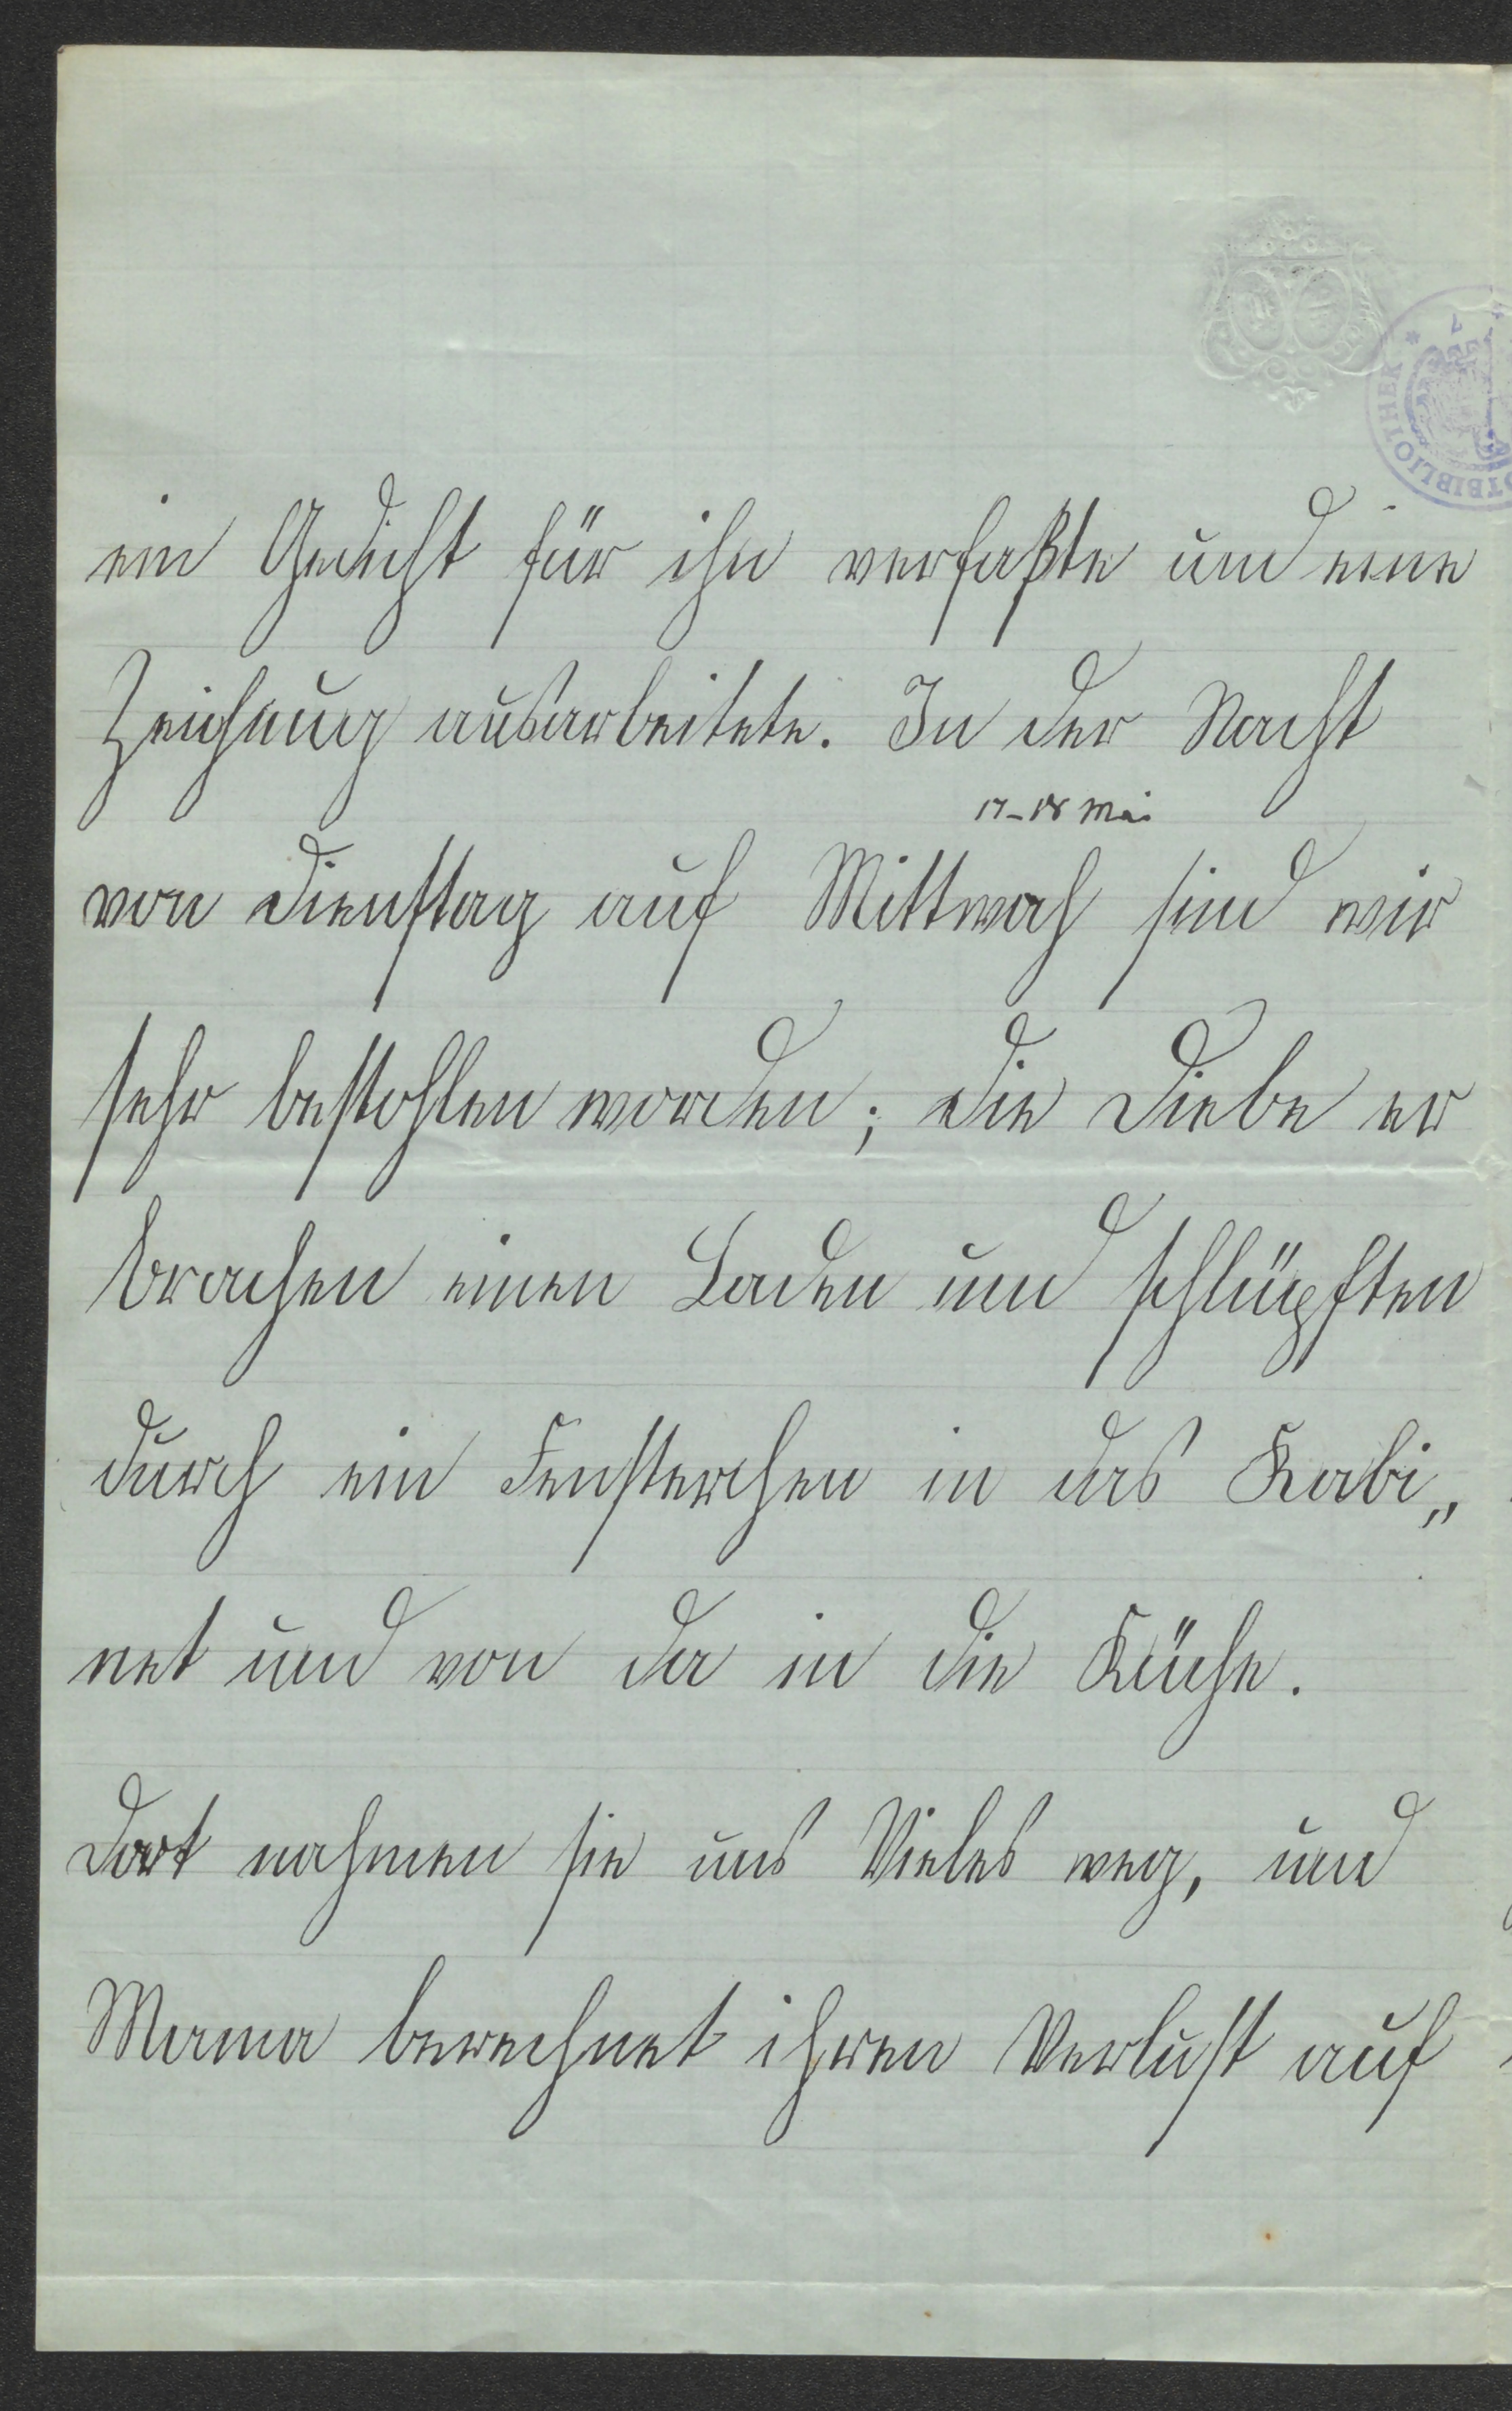 ein Gedicht für ihn verfaßte und eine
Zeichnung ausarbeitete. In der Nacht
17-18 Mai
von Dienstag auf Mittwoch sind wir
sehr bestohlen worden; die Diebe er
brachen einen Laden und schlüpften
durch ein Fensterchen in das Kabi„
net und von da in die Küche.
Dort nahmen sie uns Vieles weg, und
Mama berechnet ihren Verlust auf